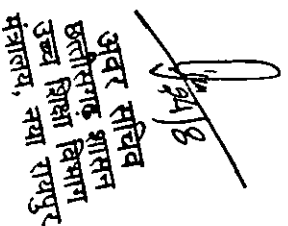 24/8
अवर सचिव
छत्तीसगढ़ शासन
उच्च शिक्षा विभाग
मंत्रालय, नया रायपुर